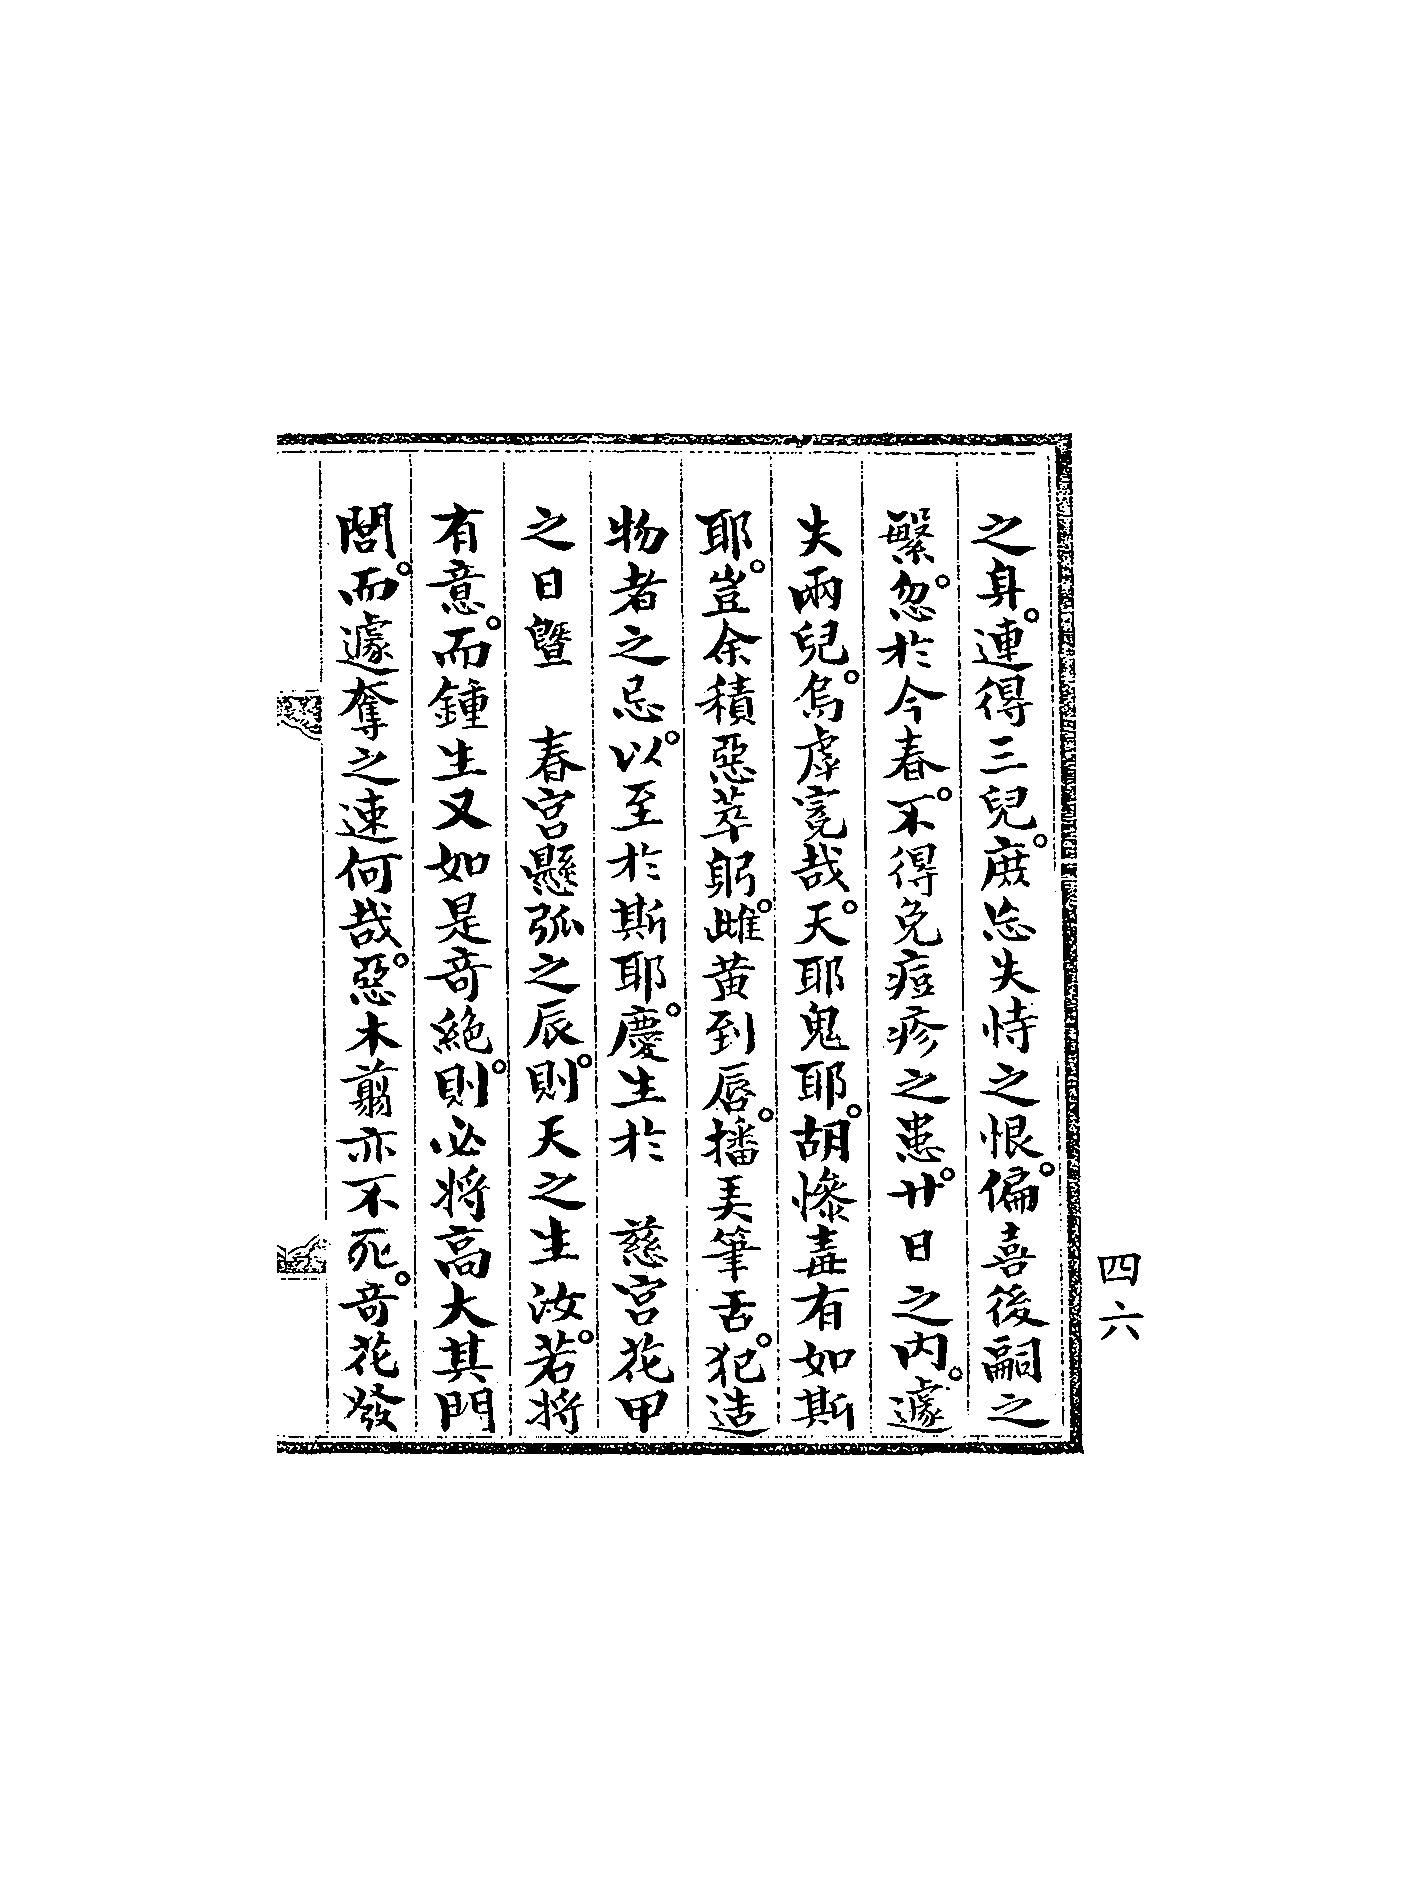 之身。連得三兒。庶忘失恃之恨。偏喜後嗣之
繁。忽於今春。不得免痘疹之患。廿日之內。遽
失兩兒。烏虖寃哉。天耶鬼耶。胡慘毒有如斯
耶。豈余積惡萃躬。雌黃到唇。播美筆舌。犯造
物者之忌。以至於斯耶。慶生於　慈宮花甲
之日曁　春宮懸弧之辰。則天之生汝。若將
有意。而鍾生又如是奇絶。則必將高大其門
閭。而遽奪之速何哉。惡木翦亦不死。奇花發
四六